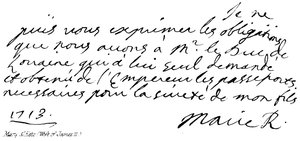 Je ne
puis vous exprimer les obligations
que nous avons à Mr. le Duc de
Loraine qui à lui seul demandé
et obtenu de l'Empereur les passeports
necessaires pour la sûreté de mon fils
1713.
Marie R.
Mary d'Este (Wife of James II.)